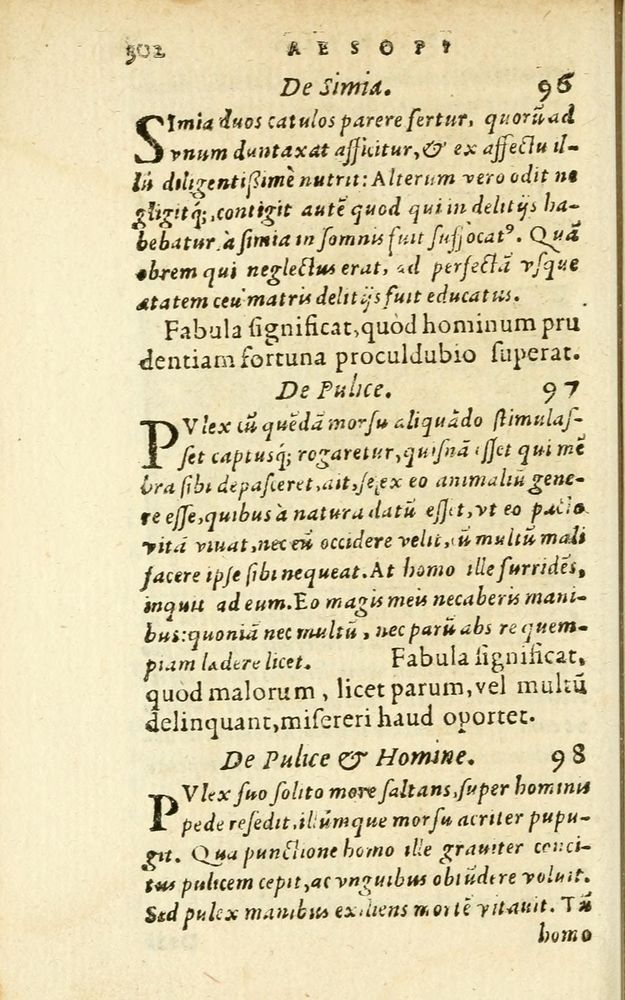 302 AESOPI
De Simia. 96
SImia duos catulos parere fertur, quorũ ad
vnum duntaxat afficitur, & ex affectu il-
lũ diligentißimè nutrit: Alterum vero odit ne
gligitq́;, contigit autẽ quod qui in delitijs ha-
bebatur à simia in somnis fuit suffocatꝰ. Quã
obrem qui neglectus erat, ad perfectã vsque
ætatem ceu matris delitijs fuit educatus.
Fabula significat, quòd hominum pru
dentiam fortuna proculdubio superat.
De Pulice. 97
PVlex cũ quẽdã morsu aliquãdo stimulas-
set captusq́; rogaretur, quisnã esset qui mẽ
bra sibi depasceret, ait, se ex eo animaliũ gene-
re esse, quibus à natura datũ esset, vt eo pacto
vitã viuat, nec eũ occidere velit, cũ multũ mali
facere ipse sibi nequeat. At homo ille surridẽs,
inquit ad eum. Eo magis meis necaberis mani-
bus: quoniã nec multũ, nec parũ abs re quem-
piam lædere licet. Fabula significat,
quod malorum, licet parum, vel multũ
delinquant, misereri haud oportet.
De Pulice & Homine. 98
PVlex suo solito more saltans, super hominis
pede resedit, illũmque morsu acriter pupu-
git. Qua punctione homo ille grauiter conci-
tus pulicem cepit, ac vnguibus obtũdere voluit.
Sed pulex manibus exiliens mortẽ vitauit. Tũ
homo